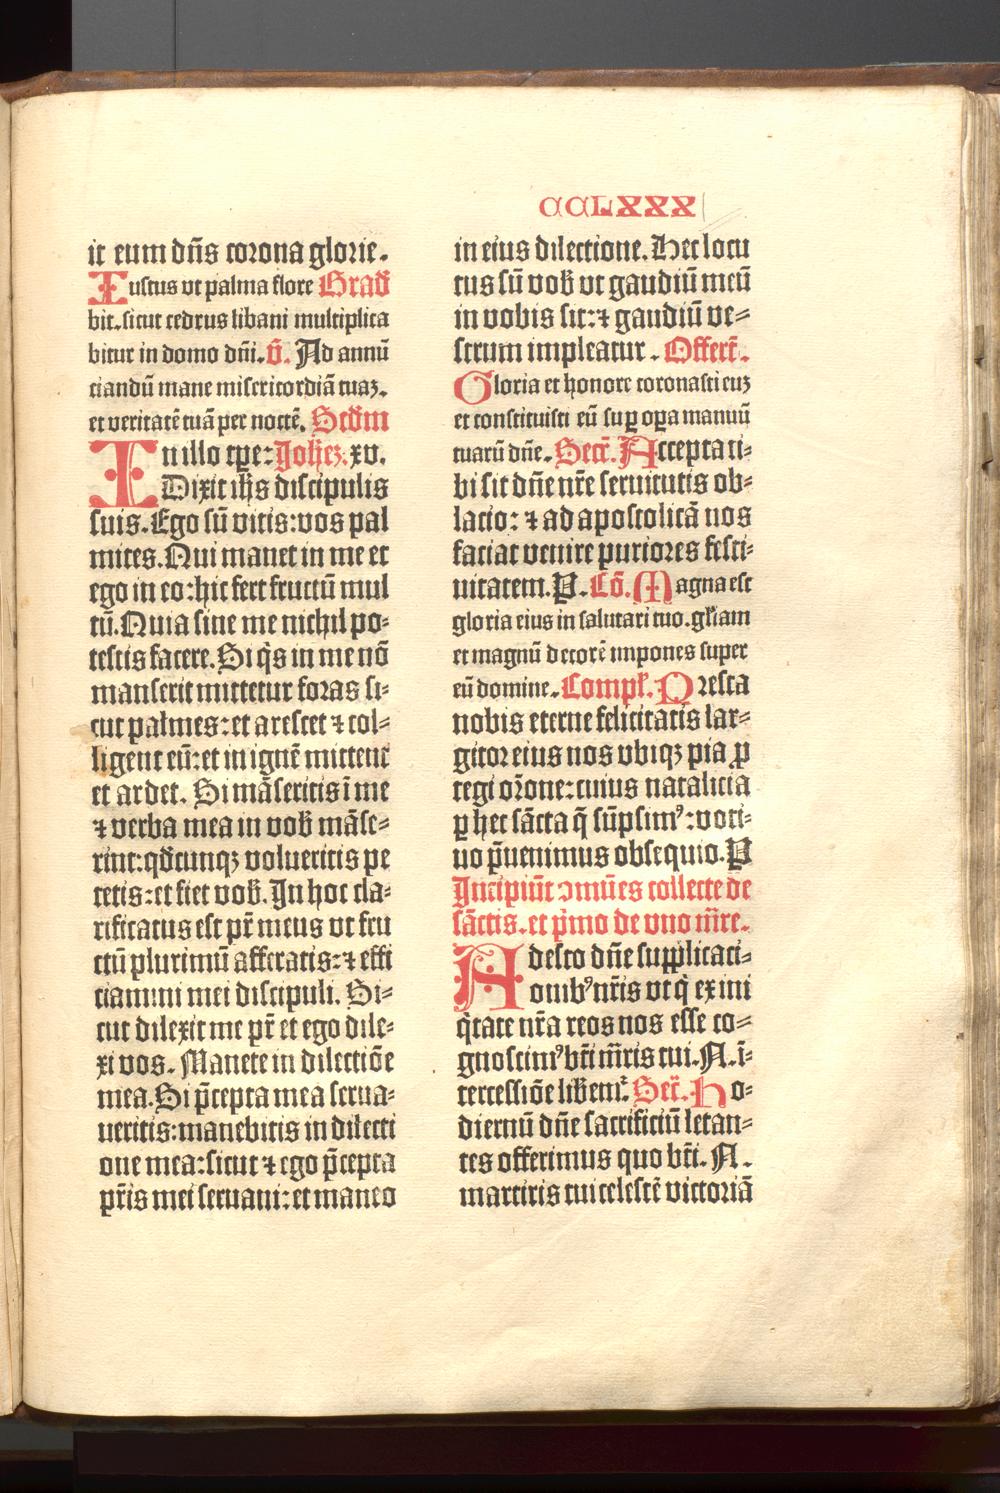 CCLXXX
it eum dñs corona glorie.
Iustus vt palma flore Grad̃
bit. sicut cedrus libani multiplica
bitur in domo dñi. v̄. Ad annũ
tiandũ mane misericordiã tuaʒ.
et veritatẽ tuã per noctẽ. Scdm̃
In illo tp̃e: Joheʒ. xv.
Dixit ih̃s discipulis
suis. Ego sũ vitis: vos pal
mites. Qui manet in me et
ego in eo: hic fert fructũ mul
tũ. Quia sine me nichil po⸗
testis facere. Si q̇s in me nõ
manserit mittetur foras si⸗
cut palmes: et arescet ⁊ col⸗
ligent eũ: et in ignẽ mittent
et ardet. Si mãseritis ĩ me
⁊ verba mea in vob̃ mãse⸗
rint: qd̃cunqʒ volueritis pe
tetis: et fiet vob̃. In hoc cla⸗
rificatus est pr̃ meus vt fru
ctũ plurimũ afferatis: ⁊ effi
ciamini mei discipuli. Si⸗
cut dilexit me pr̃ et ego dile⸗
xi vos. Manete in dilectiõe
mea. Si p̃cepta mea serua⸗
ueritis: manebitis in dilecti
one mea: sicut ⁊ ego p̃cepta
pr̃is mei seruaui: et maneo
in eius dilectione. Hec locu
tus sũ vob̃ vt gaudiũ meũ
in vobis sit: ⁊ gaudiũ ve⸗
strum impleatur. Offert̃.
Gloria et honore coronasti euʒ
et constituisti eũ suꝑ oꝑa manuũ
tuarũ dñe. Secr̃. Accepta ti⸗
bi sit dñe nr̃e seruitutis ob⸗
lacio: ⁊ ad apostolicã nos
faciat venire puriores festi⸗
uitatem. P. Cõ. Magna est
gloria eius in salutari tuo. gl̃iam
et magnũ decorẽ impones super
eũ domine. Compl̃. Presta
nobis eterne felicitatis lar⸗
gitor eius nos vbiqʒ pia ꝑ
tegi or̃one: cuius natalicia
ꝑ hec sãcta q̃ sũpsimꝰ: voti⸗
uo p̃uenimus obsequio. P
Incipiũt ɔmũes collecte de
sãctis. et p̃mo de vno m̃re.
Adesto dñe supplicati⸗
onibꝰ nr̃is vt q̇ ex ini
q̇tate nr̃a reos nos esse co⸗
gnoscimꝰ bt̃i m̃ris tui. N. ĩ⸗
tercessiõe lib̃em̃. Secr̃. Ho⸗
diernũ dñe sacrificiũ letan⸗
tes offerimus quo bt̃i. N.
martiris tui celestẽ victoriã